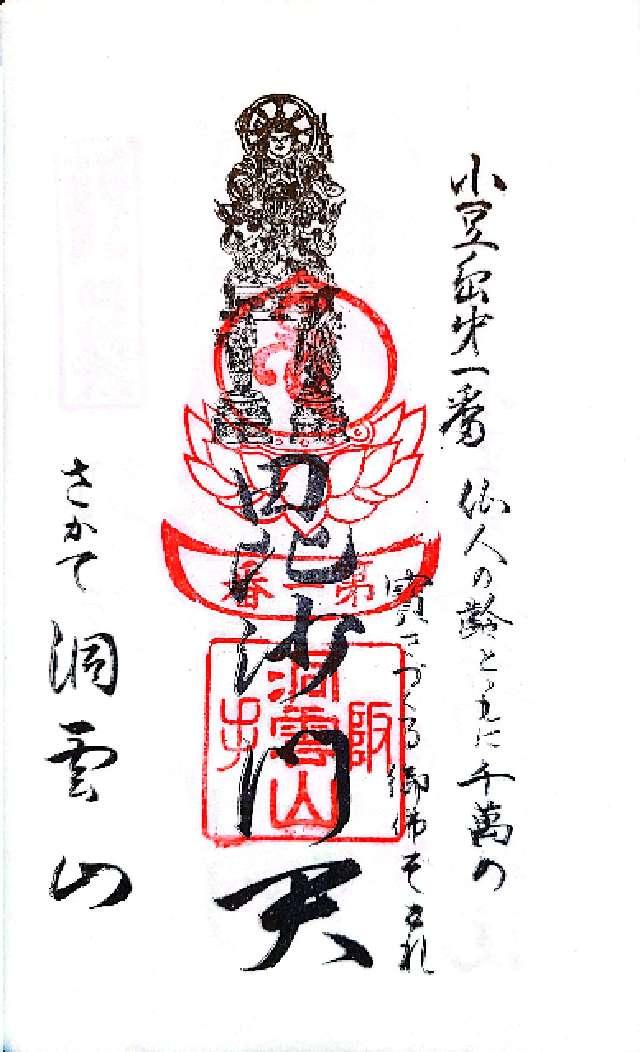 小豆島第一番 仙人の齢とともに千萬の
寶さづくる御佛ぞこれ
毘沙門天
第一番
阪手
洞雲山
さかて 洞雲山